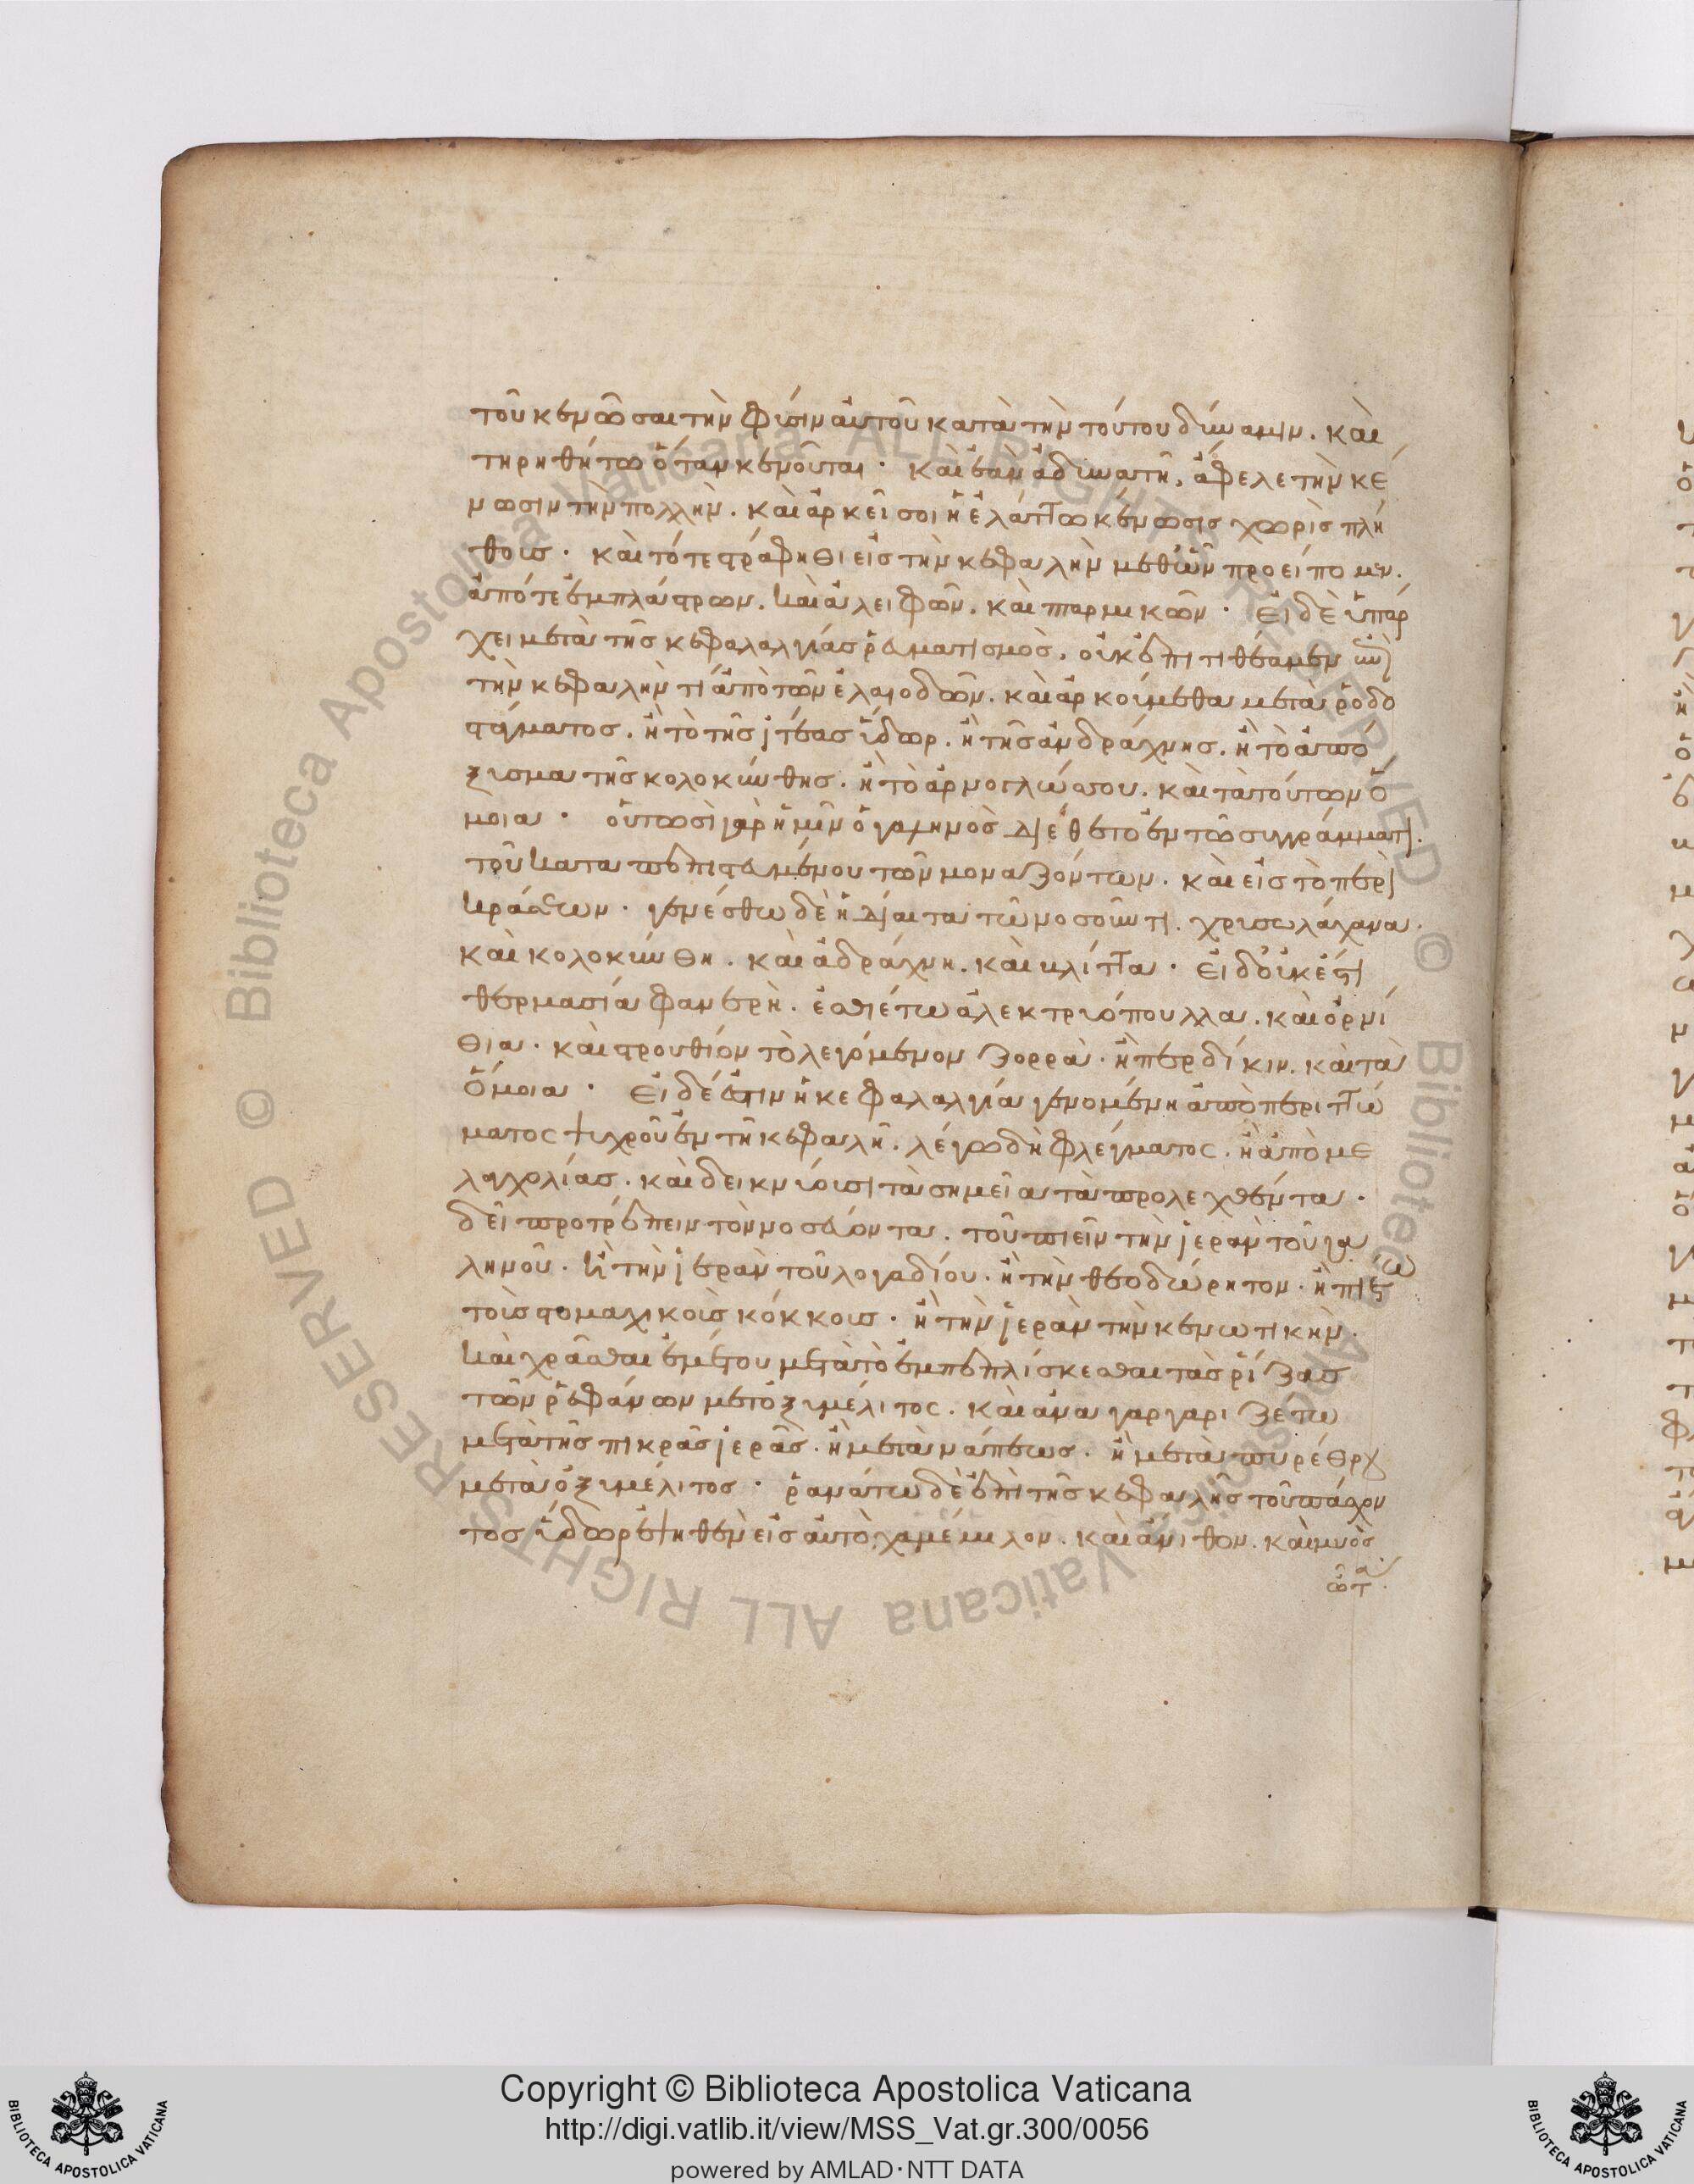 τοῦ κενῶσαι τὴν φύσιν αὐτοῦ κατὰ τὴν τούτου δύναμιν. καὶ
τηρηθήτω ὅταν κενοῦται· καὶ ἐὰν ἀδυνατῆ, ἄφελε τὴν κέ
νωσιν τὴν πολλήν. καὶ ἀρκεῖ σοι ἡ ἐλάττω κένωσις χωρὶς πλή
θους· καὶ τότε στράφηθι εἰς τὴν κεφαλὴν μεθ' ὧν προείπομεν.
ἀπό τε ἐμπλάστρων. καὶ ἀλειφῶν. καὶ πασμικῶν· Εἰ δὲ ὑπάρ
χει μετὰ τῆς κεφαλαλγίας ῥευματισμὸς, οὐκ ἐπιτιθέαμεν
τὴν κεφαλὴν τί ἀπὸ τῶν ἐλαιοδῶν. καὶ ἀρκούμεθα μετὰ ῥοδο
στάγματος. ἢ τὸ τῆς ἰτέας ὕδωρ. ἢ τῆς ἀνδράχνης. ἢ τὸ ἀπό
ξυσμα τῆς κολοκύνθης. ἢ τὸ ἀρνογλώσσου. καὶ τὰ τούτων ὅ
μοια· οὕτωσὶ γὰρ ἡμῖν ὁ γαληνὸς διέθετο ἐν τῶ συγγράμματι
τοῦ καταπεπιστευμένου τῶν μοναζόντων. καὶ εἰς τὸ περὶ
κράσεων· γενέσθω δὲ ἡ δίαιτα τῶ νοσοῦντι. χρυσωλάχανα.
καὶ κολοκύνθη. καὶ ἀδράχνη. καὶ βλίττα· Εἰ δ' οὐκ ἔστι
θερμασία φανερὴ. ἐσθιέτω ἀλεκτρυόπουλλα. καὶ ὀρνί
θια· καὶ στρουθίον τὸ λεγόμενον ζορρὰ· ἢ περδίκιν. καὶ τὰ
ὅμοια· Εἰ δέ ἐστιν ἡ κεφαλαλγία γενομένη ἀπὸ περιττώ
ματος ψυχροῦ ἐν τῆ κεφαλῆ. λέγω δὴ φλέγματος. ἢ ἀπὸ με
λαγχολίας. καὶ δεικνύουσι τὰ σημεῖα τὰ προλεχθέντα·
δεῖ προτρέπειν τὸν νοσεύοντα. τοῦ πιεῖν τὴν ἱερὰν τοῦ γα
ληνοῦ. ἢ τὴν ἱερὰν τοῦ λογαδίου. ἢ τὴν θεοδώρητον. ἢ πιέτω
τοὺς στομαχικοὺς κόκκους· ἢ τὴν ἱερὰν τὴν κενωτικὴν.
καὶ χρᾶσθαι ἐμέτου μετὰ τὸ ἐμπεπλίσκεσθαι τὰς ῥίζας
τῶν ῥεφάνων μετ' ὀξυμέλιτος. καὶ ἀναγαργαριζέτω
μετὰ τῆς πικρᾶς ἱερᾶς. ἢ μετὰ νάπεως. ἢ μετὰ πυρέθρου
μετὰ ὀξυμέλιτος· ῥανάτω δὲ ἐπὶ τῆς κεφαλῆς τοῦ πάσχον
τος ὕδωρ ἑψηθὲν εἰς αὐτὸ χαμέμιλον. καὶ ἄνιθον. καὶ μυὸς
ὦτα.
Copyright © Biblioteca Apostolica Vaticana
http://digi.vatlib.it/view/MSS_Vat.gr.300/0056
powered by AMLAD·NTT DATA